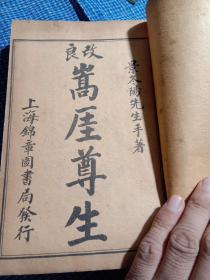 改良
景冬陽先生手著
嵩厓尊生
上海錦章圖書局發行